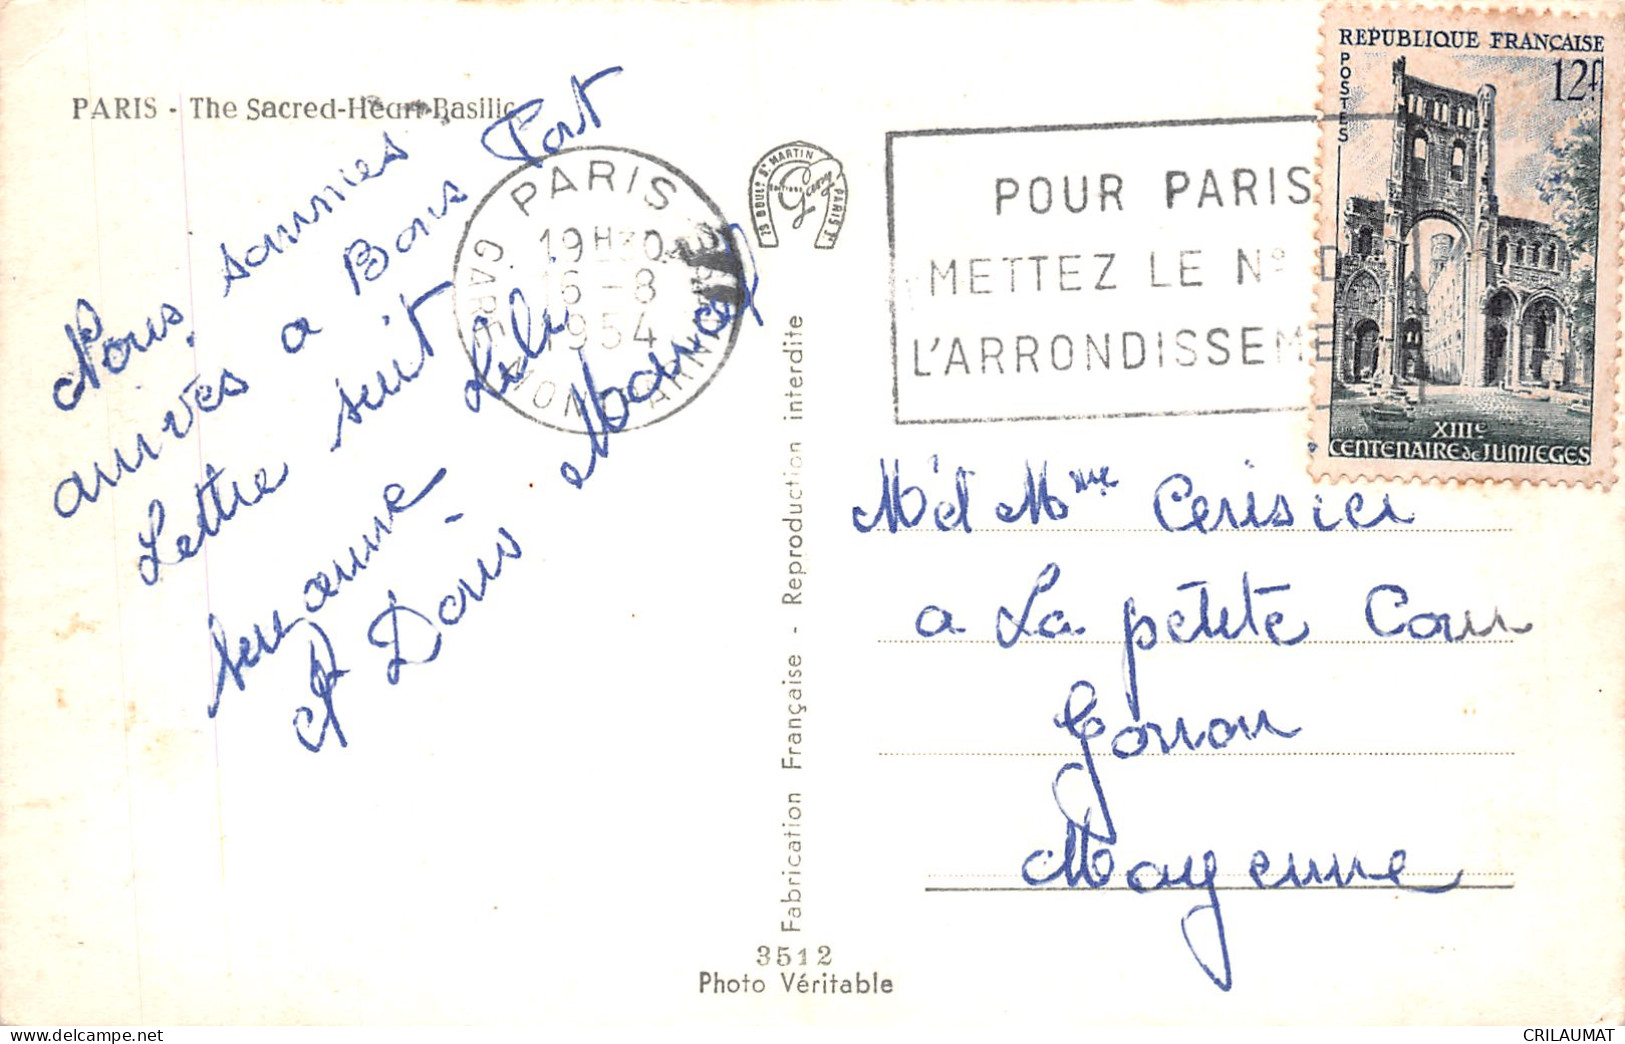 PARIS - The Sacred-Heart Basilic
Nous sommes
arrivés a Bons Port
Lettre suit Lulu
Suzanne Marcel
et Denis
PARIS
19H30
16-8
1954
GARE MONTPARNASSE
79 BOULD ST MARTIN PARIS 3e
EDITIONS
Guy
POUR PARIS
METTEZ LE No D
L'ARRONDISSEME
REPUBLIQUE FRANÇAISE
POSTES
12f
XIIIe
CENTENAIRE de JUMIEGES
M et Mme Cerisier
a La petite Cour
Gorron
Mayenne
Fabrication Française - Reproduction interdite
3512
Photo Véritable
CRILAUMAT